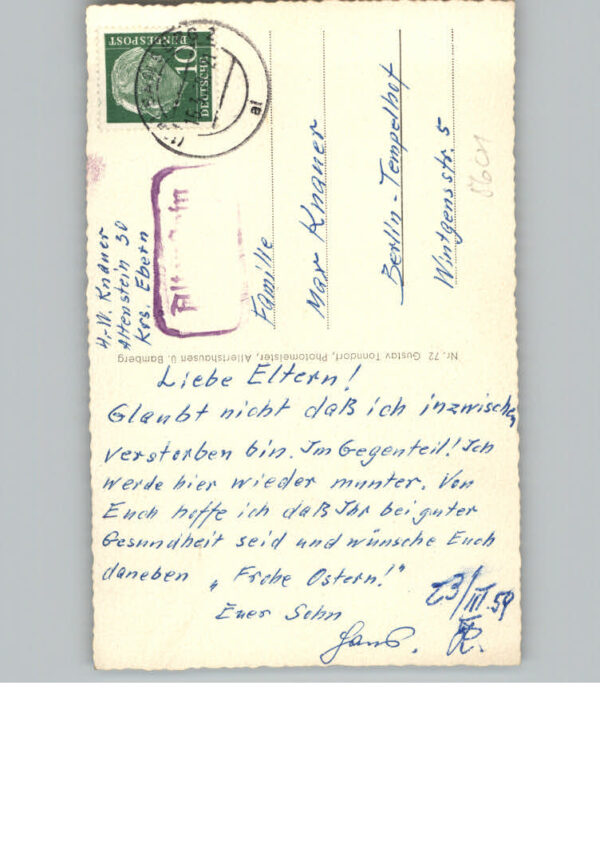 DEUTSCHE
BUNDESPOST
10
al
H.-W. Knauer
Altenstein 30
Krs. Ebern
Familie
Max Knauer
Berlin-Tempelhof
Wintgensstr. 5
Nr. 72 Gustav Tonndorf, Photomeister, Allertshausen ü. Bamberg
Liebe Eltern!
Glaubt nicht daß ich inzwischen
verstorben bin. Im Gegenteil! Ich
werde hier wieder munter. Von
Euch hoffe ich daß Ihr bei guter
Gesundheit seid und wünsche Euch
daneben „Frohe Ostern!"
Euer Sohn
Hans.
23/III.59